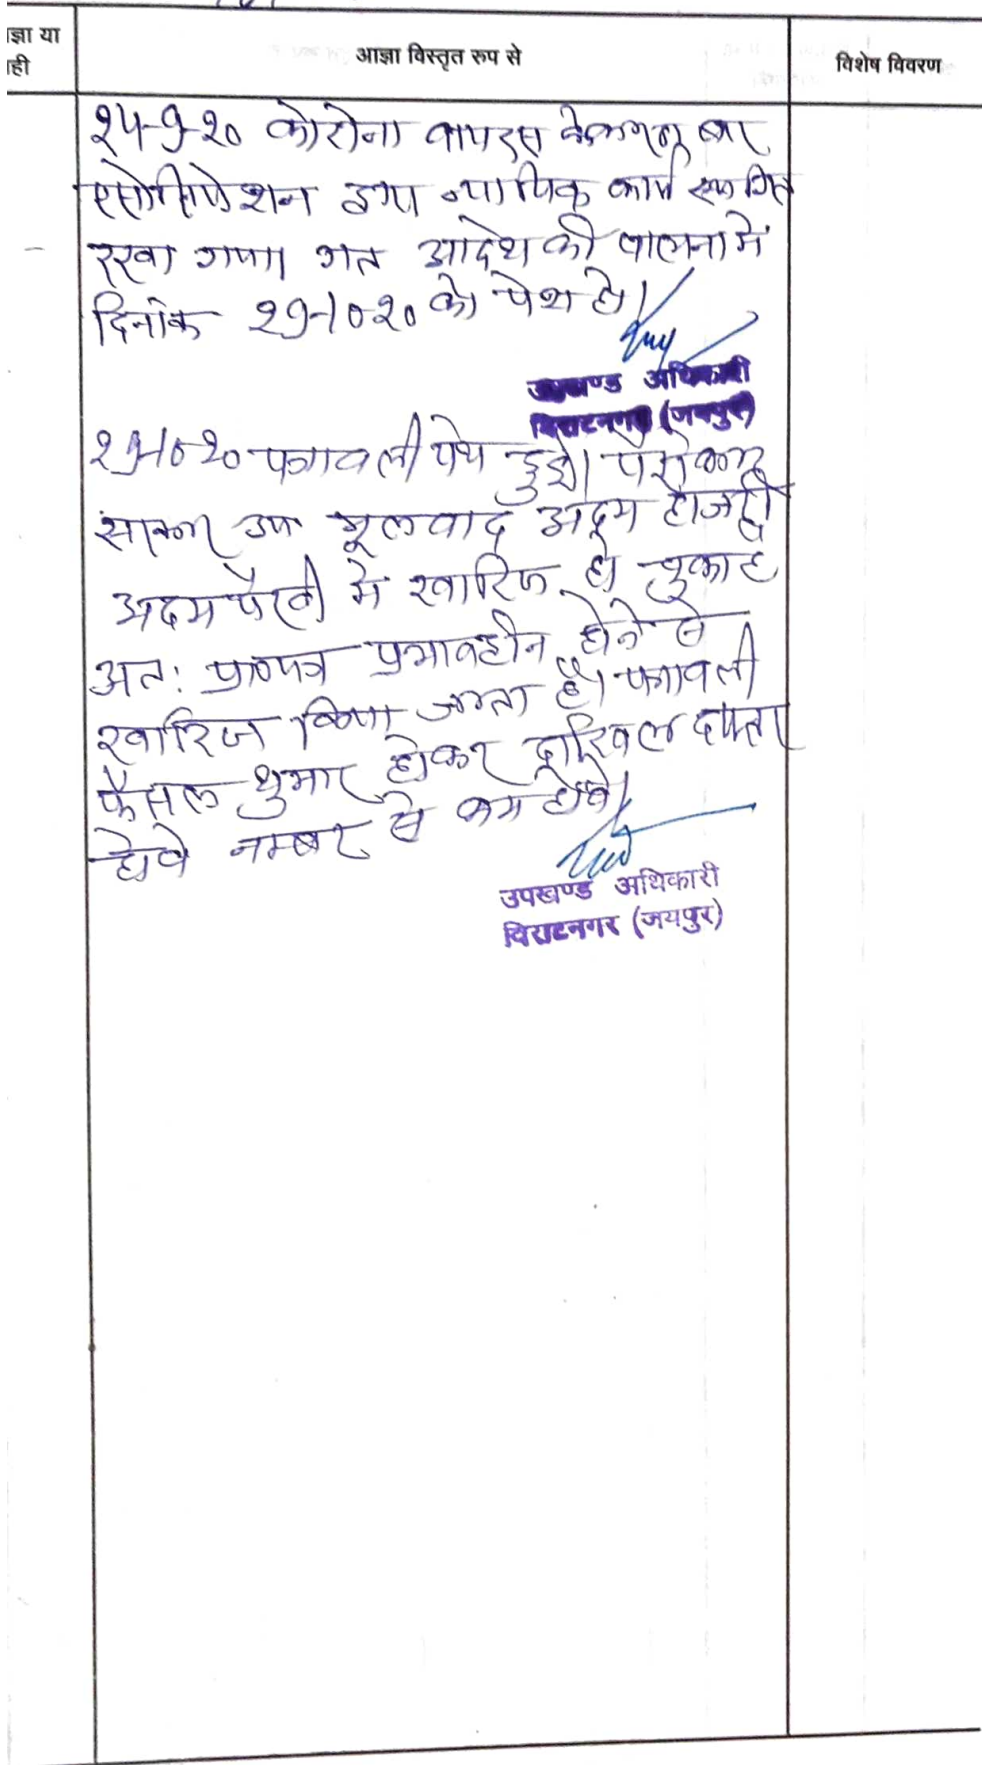 ज्ञा या
ही
आज्ञा विस्तृत रूप से
विशेष विवरण
24-9-20 कोरोना वायरस के कारण बार
एसोसियेशन द्वारा न्यायिक कार्य स्थगित
रखा गया। गत आदेश की पालना में
दिनांक 29-10-20 को पेश हो।
उपखण्ड अधिकारी
विराटनगर (जयपुर)
29-10-20 पत्रावली पेश हुई। पैरोकार
सरकार उप मूलवाद अदम हाजरी
अदम पैरवी में खारिज हो चुका है
अतः प्रा०पत्र प्रभावहीन होने से
खारिज किया जाता है। पत्रावली
फैसल शुमार होकर दाखिल दफ्तर
होवे नम्बर से कम होवे।
उपखण्ड अधिकारी
विराटनगर (जयपुर)